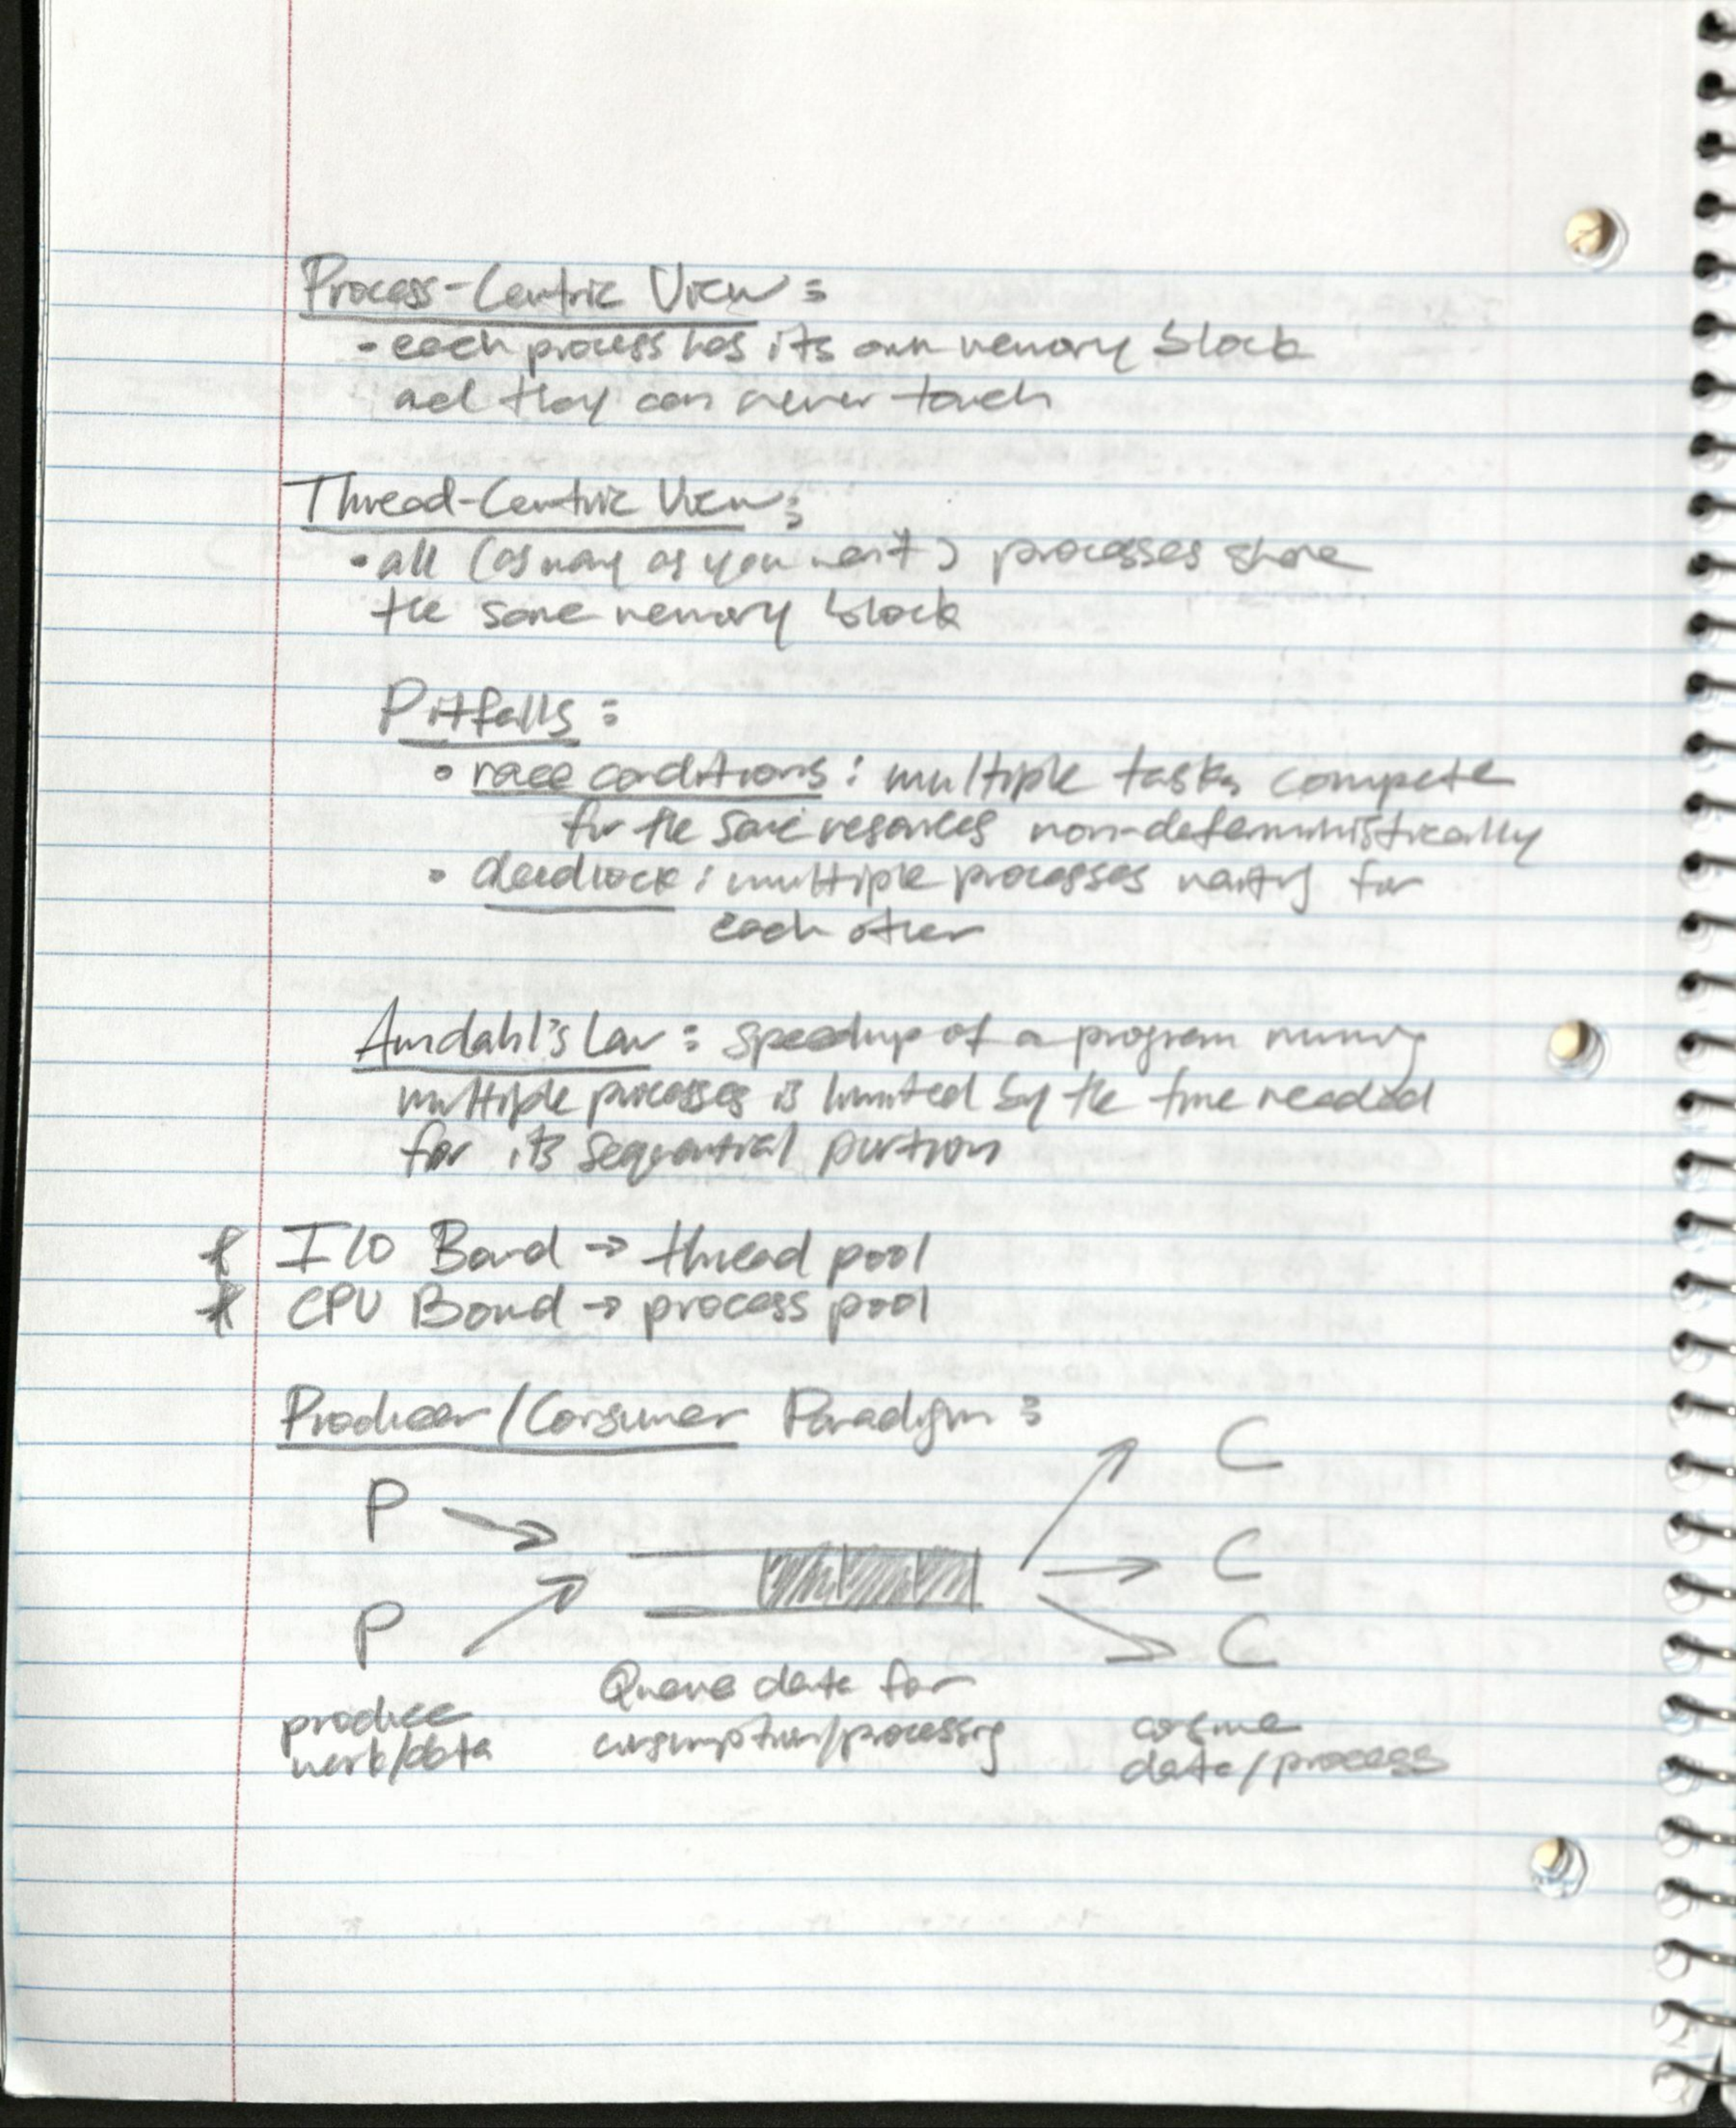 Process-Centric View:
- each process has its own memory block
and they can never touch
Thread-Centric View:
• all (as many as you want) processes share
the same memory block
Pitfalls:
• race conditions: multiple tasks compete
for the same resources non-deterministically
• deadlock: multiple processes waiting for
each other
Amdahl's Law: speedup of a program running
multiple processes is limited by the time needed
for its sequential portion
* I/O Bound → thread pool
* CPU Bound → process pool
Producer/Consumer Paradigm:
C
P
C
P
C
Queue data for
consumption/processing
produce
work/data
consume
data/process